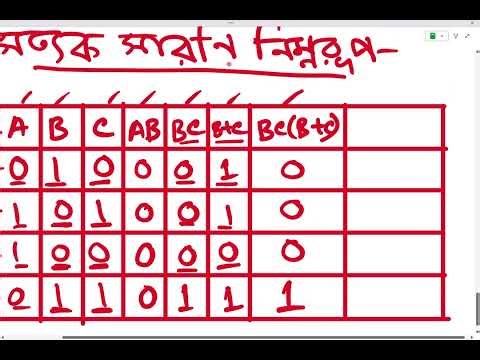 সত্যক সারনি নিম্নরূপ-
A B C AB BC B+C BC(B+C)
0 1 0 0 0 1 0
1 0 1 0 0 1 0
1 0 0 0 0 0 0
0 1 1 0 1 1 1